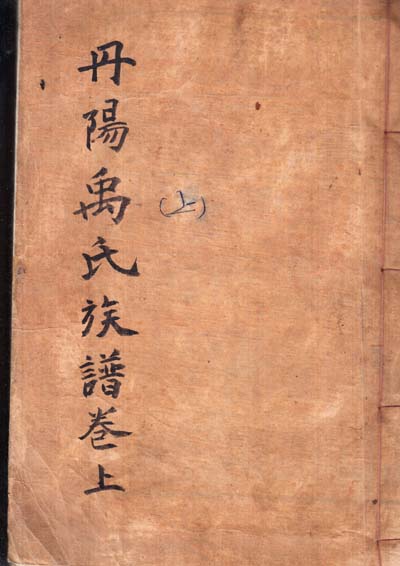 丹陽禹氏族譜卷上
(上)